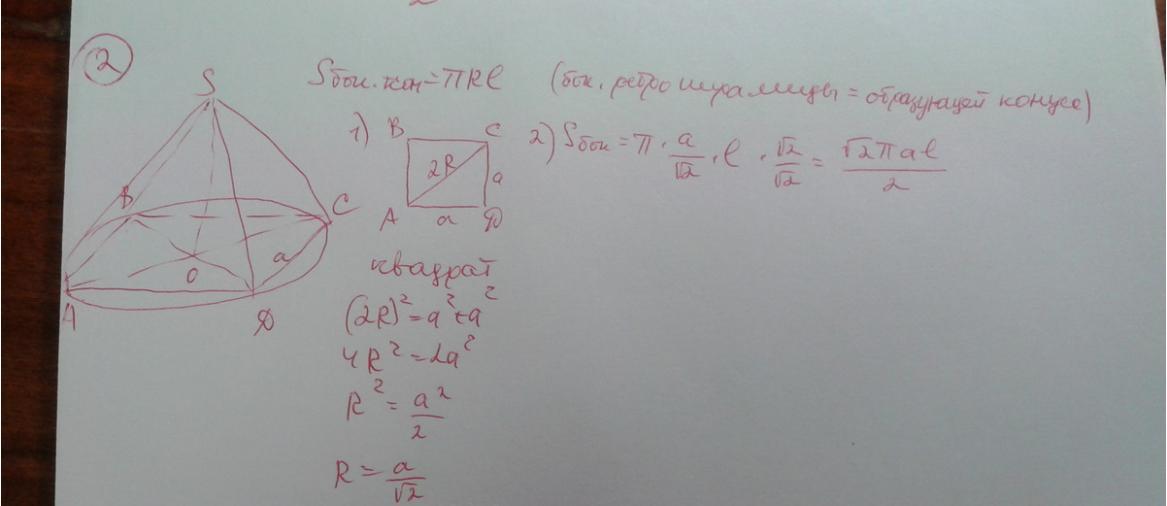 2
Sбок.кон=πRl (бок. ребро пирамиды = образующей конуса)
S
B
C
A
D
O
a
1)
B C
2R
a
A a D
квадрат
(2R)²=a²+a²
4R²=2a²
R²=a²/2
R=a/√2
2) Sбок=π·a/√2·l·√2/√2=√2πal/2